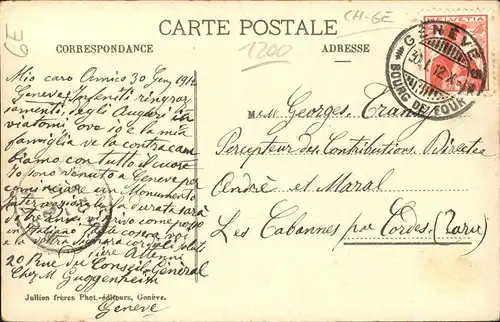 CARTE POSTALE
CORRESPONDANCE
ADRESSE
CH-GE
1200
GE
HELVETIA
GENÈVE
BOURG DE FOUR
Mio caro Amico 30 Gen 1912
Geneve Infiniti ringraz
iamenti degli Auguri in
viatomi ove io e la mia
famiglia ve la contracam
biamo con tutto il cuore
Io sono venuto a Geneve per
cominciare un Monumento
Internazionale la durata sarà
di tre anni vi scrivo come posso
in Italiano
e la vostra Signora cordiali salute
20 Rue du Conseil Général
Chez M Guggenheim
Geneve
M Georges
Percepteur des Contributions Directes
André et Maral
Les Cabannes par Cordes (Tarn)
Jullien frères Phot.-éditeurs, Genève.